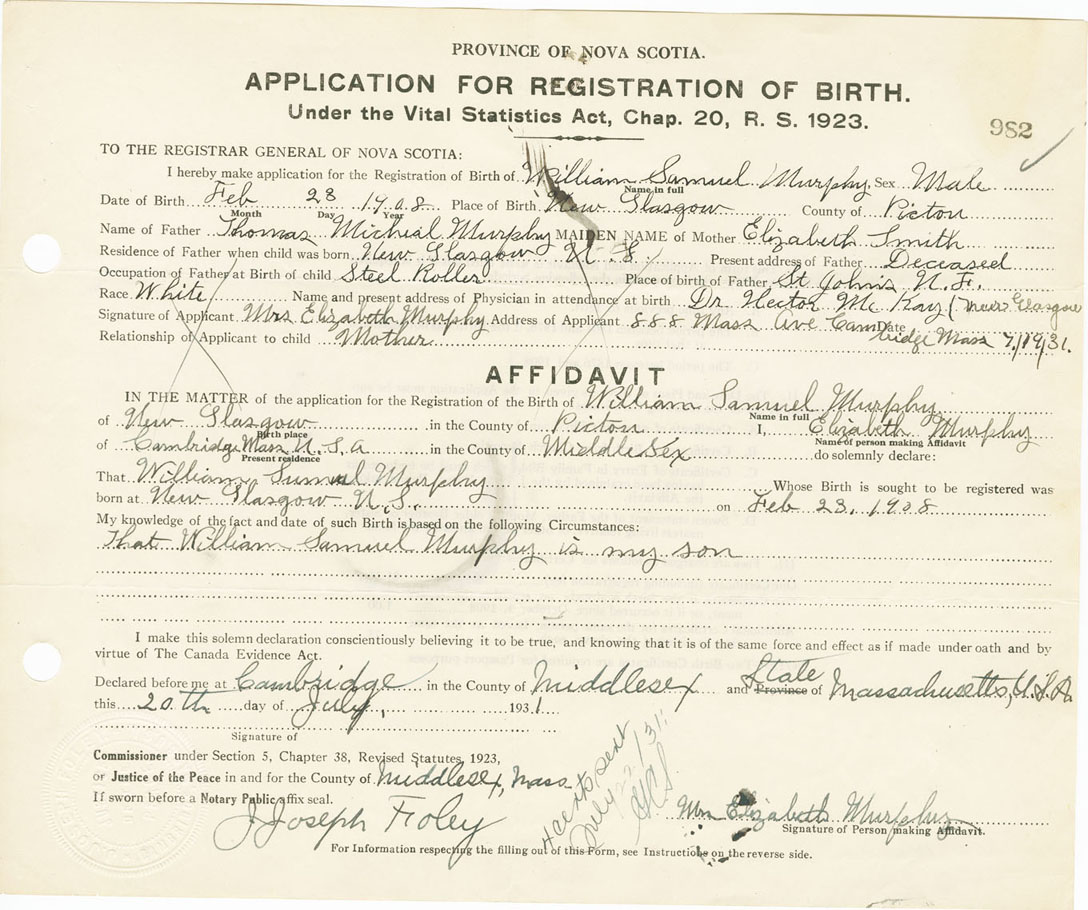 PROVINCE OF NOVA SCOTIA.
APPLICATION FOR REGISTRATION OF BIRTH.
Under the Vital Statistics Act, Chap. 20, R. S. 1923.
982
TO THE REGISTRAR GENERAL OF NOVA SCOTIA:
I hereby make application for the Registration of Birth of William Samuel Murphy Sex Male
Name in full
Date of Birth Feb 23 1908 Place of Birth New Glasgow County of Picton
Month Day Year
Name of Father Thomas Micheal Murphy MAIDEN NAME of Mother Elizabeth Smith
Residence of Father when child was born New Glasgow N S Present address of Father Deceased
Occupation of Father at Birth of child Steel Roller Place of birth of Father St Johns N. F.
Race White Name and present address of Physician in attendance at birth Dr Hector Mc Kay (New Glasgow
Signature of Applicant Mrs Elizabeth Murphy Address of Applicant 888 Mass Ave Cambridge Mass Date 7/19/31.
Relationship of Applicant to child Mother
AFFIDAVIT
IN THE MATTER of the application for the Registration of the Birth of William Samuel Murphy
Name in full
of New Glasgow in the County of Picton I, Elizabeth Murphy
Birth place Name of person making Affidavit
of Cambridge Mass U. S. A in the County of MiddleSex do solemnly declare:
Present residence
That William Sumual Murphy Whose Birth is sought to be registered was
born at New Glasgow N. S. on Feb 23, 1908
My knowledge of the fact and date of such Birth is based on the following Circumstances:
That William Samuel Murphy is my son
I make this solemn declaration conscientiously believing it to be true, and knowing that it is of the same force and effect as if made under oath and by
virtue of The Canada Evidence Act.
Declared before me at Cambridge in the County of Middlesex and State Province of Massachusetts, U.S.A.
this 20th day of July, 1931
Signature of
Commissioner under Section 5, Chapter 38, Revised Statutes, 1923,
or Justice of the Peace in and for the County of Middlesex, Mass
If sworn before a Notary Public affix seal.
J Joseph Foley
sent
July 22/31
Mrs Elizabeth Murphy
Signature of Person making Affidavit.
For Information respecting the filling out of this Form, see Instructions on the reverse side.